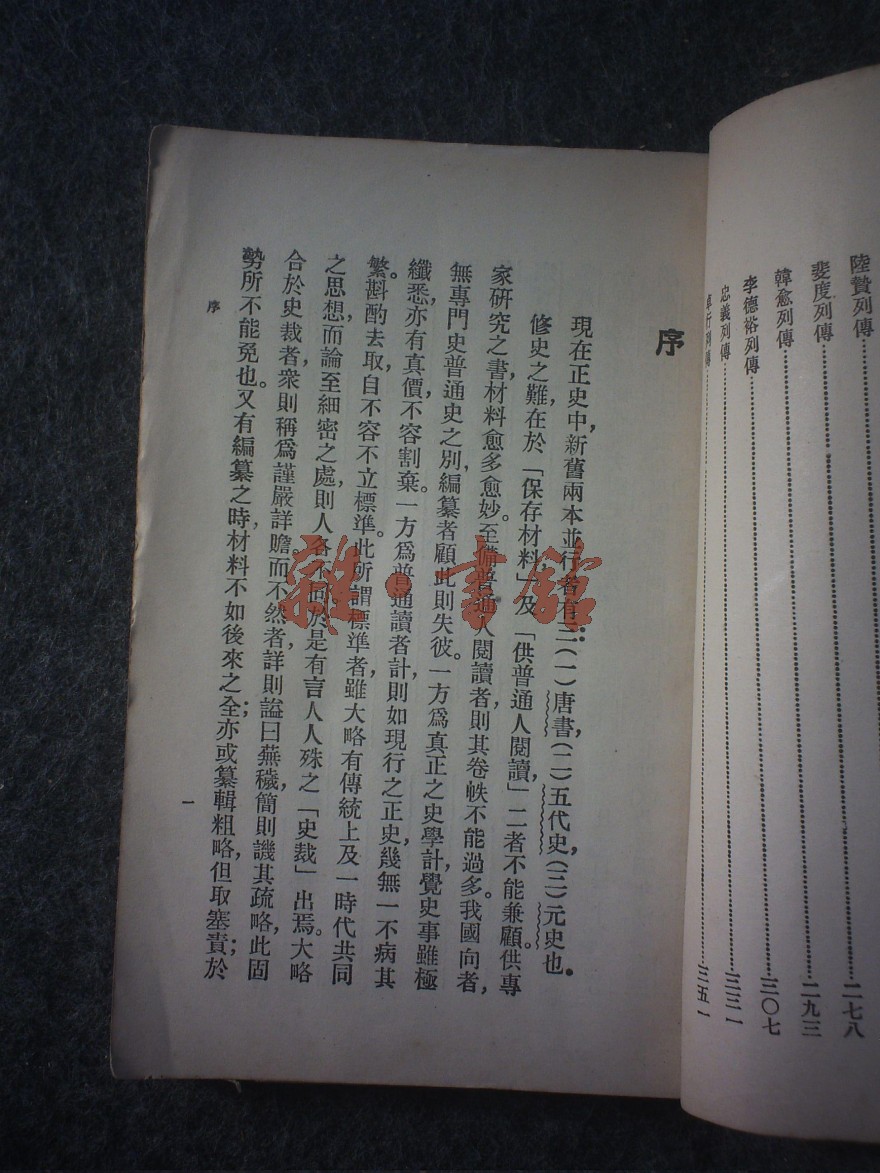 陸贄列傳……………………二七八
裴度列傳……………………二九三
韓愈列傳……………………三〇七
李德裕列傳……………………三三一
忠義列傳……………………三五一
卓行列傳……………………
序
現在正史中,新舊兩本並行者有三:(一)唐書,(二)五代史,(三)元史也。
修史之難在於「保存材料」及「供普通人閱讀,」二者不能兼顧。供專
家研究之書,材料愈多愈妙。至備普通人閱讀者,則其卷帙不能過多。我國向者,
無專門史普通史之別,編纂者顧此則失彼。一方爲真正之史學計,覺史事雖極
纖悉,亦有真價,不容割棄。一方爲普通讀者計,則如現行之正史,幾無一不病其
繁。斟酌去取,自不容不立標準。此所謂標準者,雖大略有傳統上及一時代共同
之思想,而論至細密之處,則人各不同。於是有言人人殊之「史裁」出焉。大略
合於史裁者,衆則稱爲謹嚴詳贍。而不然者,詳則謚曰蕪穢,簡則譏其疏略,此固
勢所不能免也。又有編纂之時,材料不如後來之全;亦或纂輯粗略,但取塞責;於
序
一
雜·書館